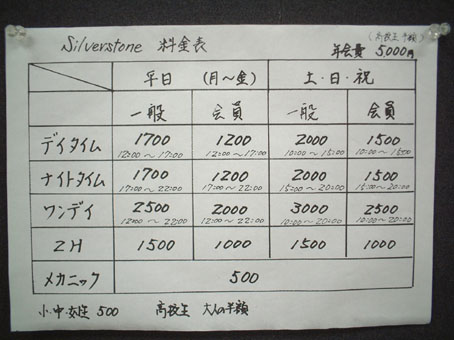 Silverstone 料金表
(高校生半額)
年会費 5,000円
平日 (月〜金) 土・日・祝
一般 会員 一般 会員
デイタイム 1700 1200 2000 1500
12:00〜17:00 12:00〜17:00 10:00〜15:00 10:00〜15:00
ナイトタイム 1700 1200 2000 1500
17:00〜22:00 17:00〜22:00 15:00〜20:00 15:00〜20:00
ワンデイ 2500 2000 3000 2500
12:00〜22:00 12:00〜22:00 10:00〜20:00 10:00〜20:00
2H 1500 1000 1500 1000
メカニック 500
小・中・女性 500 高校生 大人の半額